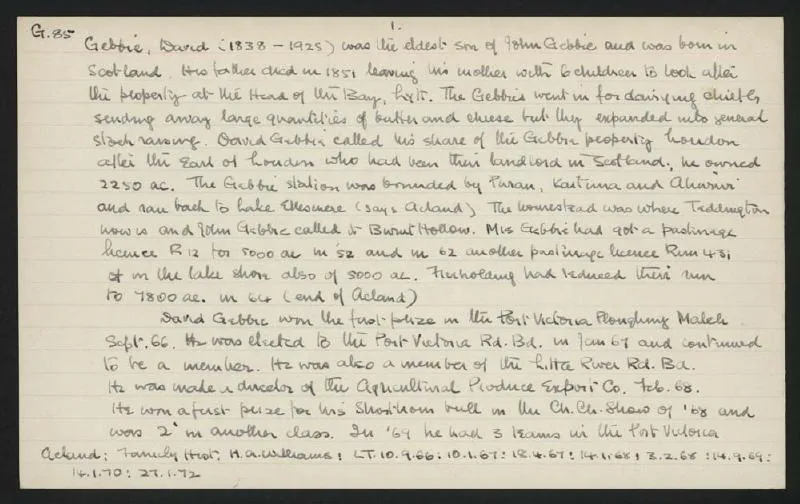 G.85
1.
Gebbie, David (1838 - 1925) was the eldest son of John Gebbie and was born in
Scotland. His father died in 1851 leaving his mother with 6 children to look after
the property at the Head of the Bay, Lytt. The Gebbies went in for dairying chiefly
sending away large quantities of butter and cheese but they expanded into general
stock raising. David Gebbie called his share of the Gebbie property Loudon
after the Earl of Loudon who had been their landlord in Scotland, he owned
2250 ac. The Gebbie station was bounded by Purau, Kaituna and Ahuriri
and ran back to Lake Ellesmere (says Acland) The homestead was where Teddington
now is and John Gebbie called it Burnt Hollow. Mrs Gebbie had got a pasturage
licence R 12 for 5000 ac in '52 and in 62 another pasturage licence Run 431
on the lake shore also of 5000 ac. Freeholding had reduced their run
to 7800 ac. in 64 (end of Acland)
David Gebbie won the first prize in the Port Victoria Ploughing Match
Sept. 66. He was elected to the Port Victoria Rd. Bd. in Jan 67 and continued
to be a member. He was also a member of the Little River Rd. Bd.
He was made a director of the Agricultural Produce Export Co. Feb. 68.
He won a first prize for his Shorthorn bull in the Ch.Ch. Show of '68 and
was 2nd in another class. In '69 he had 3 teams in the Port Victoria
Acland; Family Hist; H.A. Williams; LT. 10.9.66: 10.1.67: 18.4.67: 14.1.68; 3.2.68: 14.9.69:
14.1.70: 27.1.72